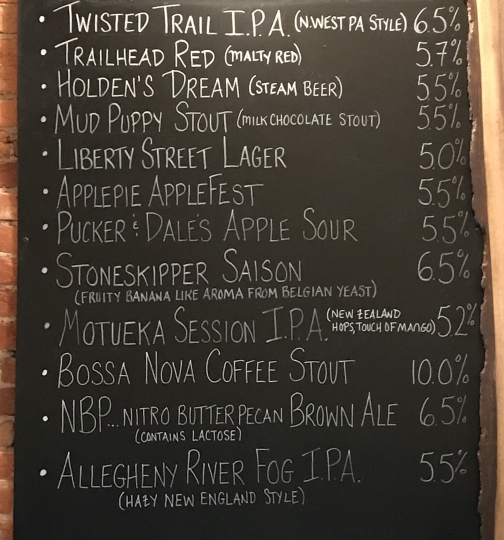 • TWISTED TRAIL I.P.A. (N.WEST PA STYLE) 6.5%
• TRAILHEAD RED (MALTY RED) 5.7%
• HOLDEN'S DREAM (STEAM BEER) 5.5%
• MUD PUPPY STOUT (MILK CHOCOLATE STOUT) 5.5%
• LIBERTY STREET LAGER 5.0%
• APPLEPIE APPLEFEST 5.5%
• PUCKER & DALE'S APPLE SOUR 5.5%
• STONESKIPPER SAISON 6.5%
(FRUITY BANANA LIKE AROMA FROM BELGIAN YEAST)
• MOTUEKA SESSION I.P.A. (NEW ZEALAND
HOPS, TOUCH OF MANGO) 5.2%
• BOSSA NOVA COFFEE STOUT 10.0%
• NBP... NITRO BUTTER PECAN BROWN ALE 6.5%
(CONTAINS LACTOSE)
• ALLEGHENY RIVER FOG I.P.A. 5.5%
(HAZY NEW ENGLAND STYLE)